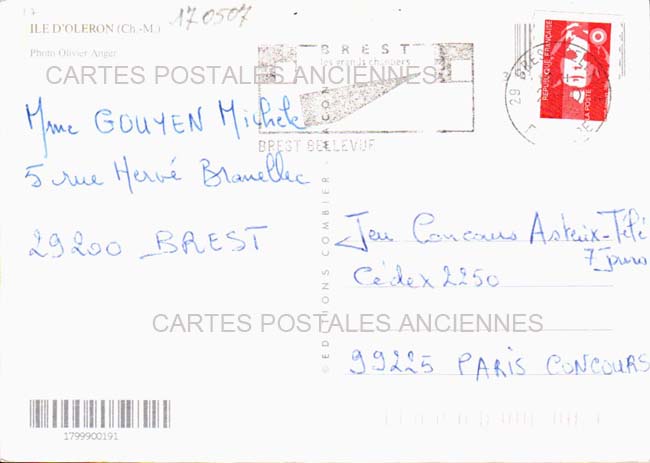 170507
ILE D'OLERON (Ch.-M.)
Photo Olivier Anger
CARTES POSTALES ANCIENNES
BREST
les grands chantiers
BREST BELLEVUE
29 BREST
REPUBLIQUE FRANCAISE
LA POSTE
Mme GOUYEN Michele
5 rue Hervé Branellec
29200 BREST
© EDITIONS COMBIER MACON
Jeu Concours Asterix-Télé
7 Jours
Cédex 2250
99225 PARIS CONCOURS
CARTES POSTALES ANCIENNES
1799900191